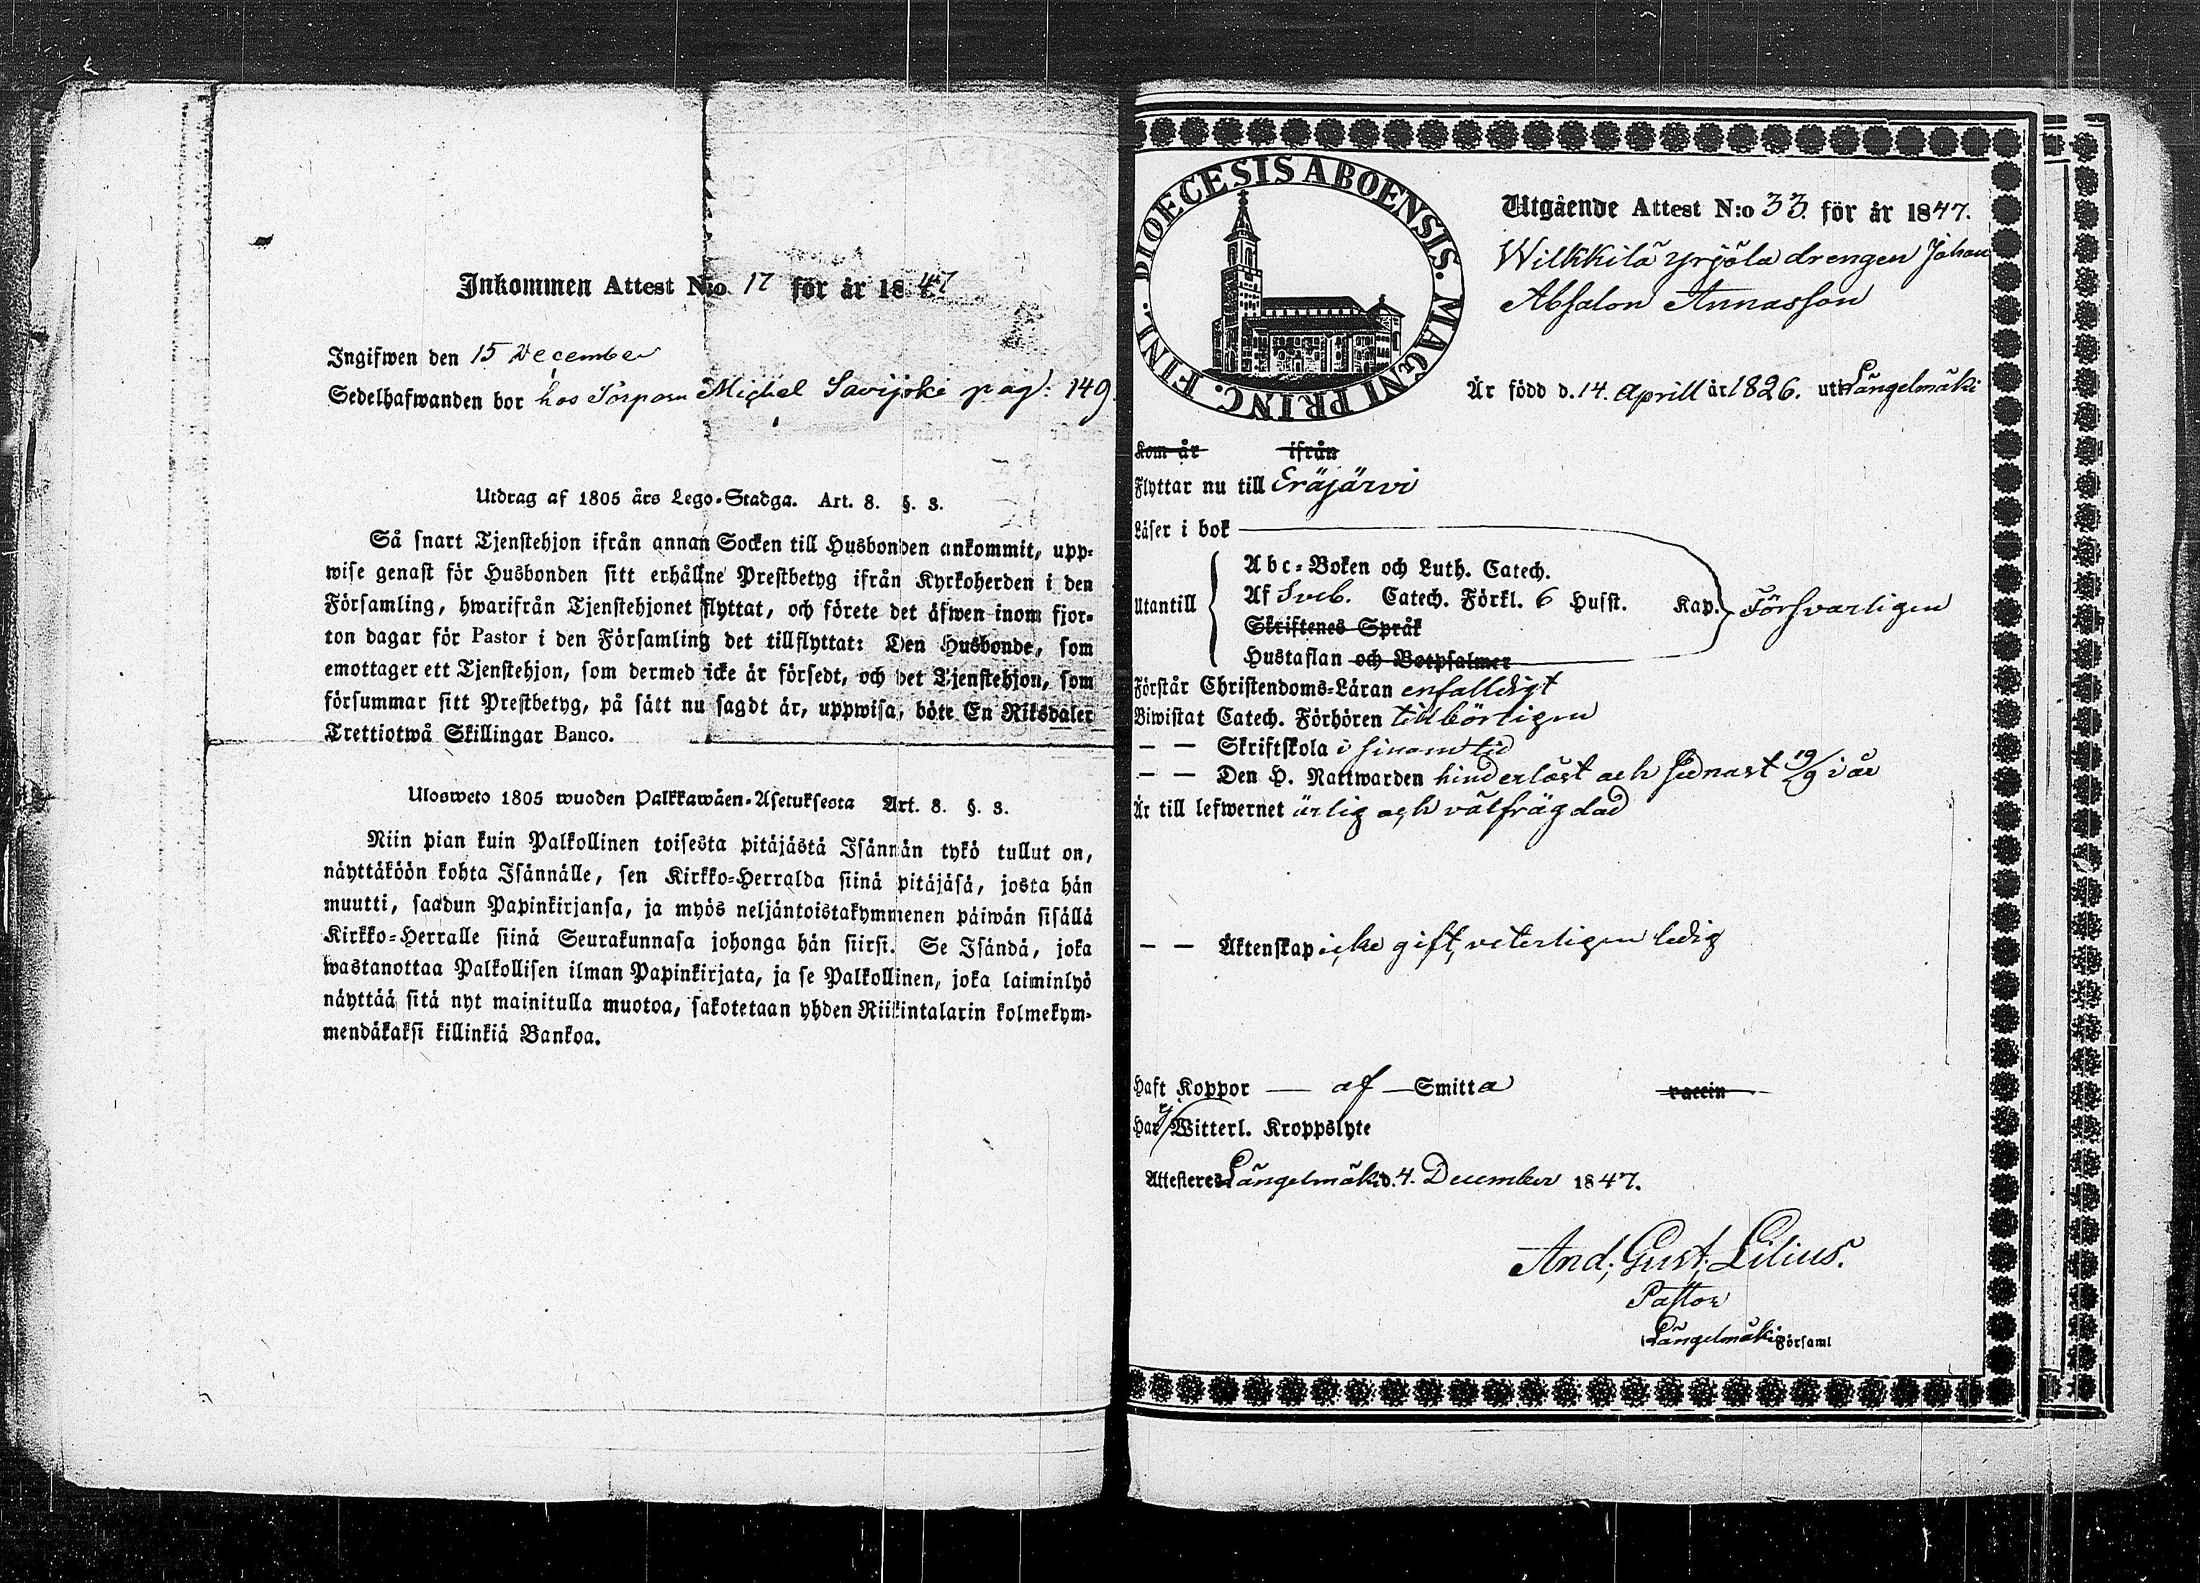 Inkommen Attest N:o 17 för år 1847
Ingifwen den 15 December
Sedelhafwanden bor hos Torparn Michel Savijoki pag: 149.
Utdrag af 1805 års Lego-Stadga. Art. 8. §. 3.
Så snart Tjenstehjon ifrån annan Socken till Husbonden ankommit, upp-
wise genast för Husbonden sitt erhållne Prestbetyg ifrån Kyrkoherden i den
Församling, hwarifrån Tjenstehjonet flyttat, och förete det äfwen inom fjor-
ton dagar för Pastor i den Församling det tillflyttat: Den Husbonde, som
emottager ett Tjenstehjon, som dermed icke är försedt, och det Tjenstehjon, som
försummar sitt Prestbetyg, på sätt nu sagdt är, uppwisa, böte En Riksdaler
Trettiotwå Skillingar Banco.
Ulosweto 1805 wuoden Palkkawäen-Asetuksesta Art. 8. §. 3.
Niin pian kuin Palkollinen toisesta pitäjästä Isännän tykö tullut on,
näyttäköön kohta Isännälle, sen Kirkko-Herralda siinä pitäjäsä, josta hän
muutti, saadun Papinkirjansa, ja myös neljäntoistakymmenen päiwän sisällä
Kirkko-Herralle siinä Seurakunnasa johonga hän siirsi. Se Isändä, joka
wastanottaa Palkollisen ilman Papinkirjata, ja se Palkollinen, joka laiminlyö
näyttää sitä nyt mainitulla muotoa, sakotetaan yhden Riikintalarin kolmekym-
mendäkaksi killinkiä Bankoa.
DIOECESIS ABOENSIS. MAGNI PRINC. FINL.
Utgående Attest N:o 33. för år 1847.
Wilkkilä Yrjölä drengen Johan
Absalon Annasson
Är född d. 14. Aprill år 1826. uti Längelmäki
Kom år ifrån
Flyttar nu till Eräjärvi
Läser i bok
Abc-Boken och Luth. Catech.
Utantill Af Sveb. Catech. Förkl. 6 Husst. Kap. Försvarligen
Skriftenes Språk
Hustaflan och Botpsalmer
Förstår Christendoms-Läran enfaldigt
Biwistat Catech. Förhören tillbörligen
— — Skriftskola i sinom tid
— — Den H. Nattwarden hinderlöst och sednast 19/9 i år
Är till lefwernet ärlig och välfrägdad
— — Äktenskap icke gift, veterligen ledig
Haft Koppor — af — Smitta vaccin
Har ej Witterl. Kroppslyte
Attesteres Längelmäki d. 4. December 1847.
And; Gust; Lilius.
Pastor
i Längelmäki Församl